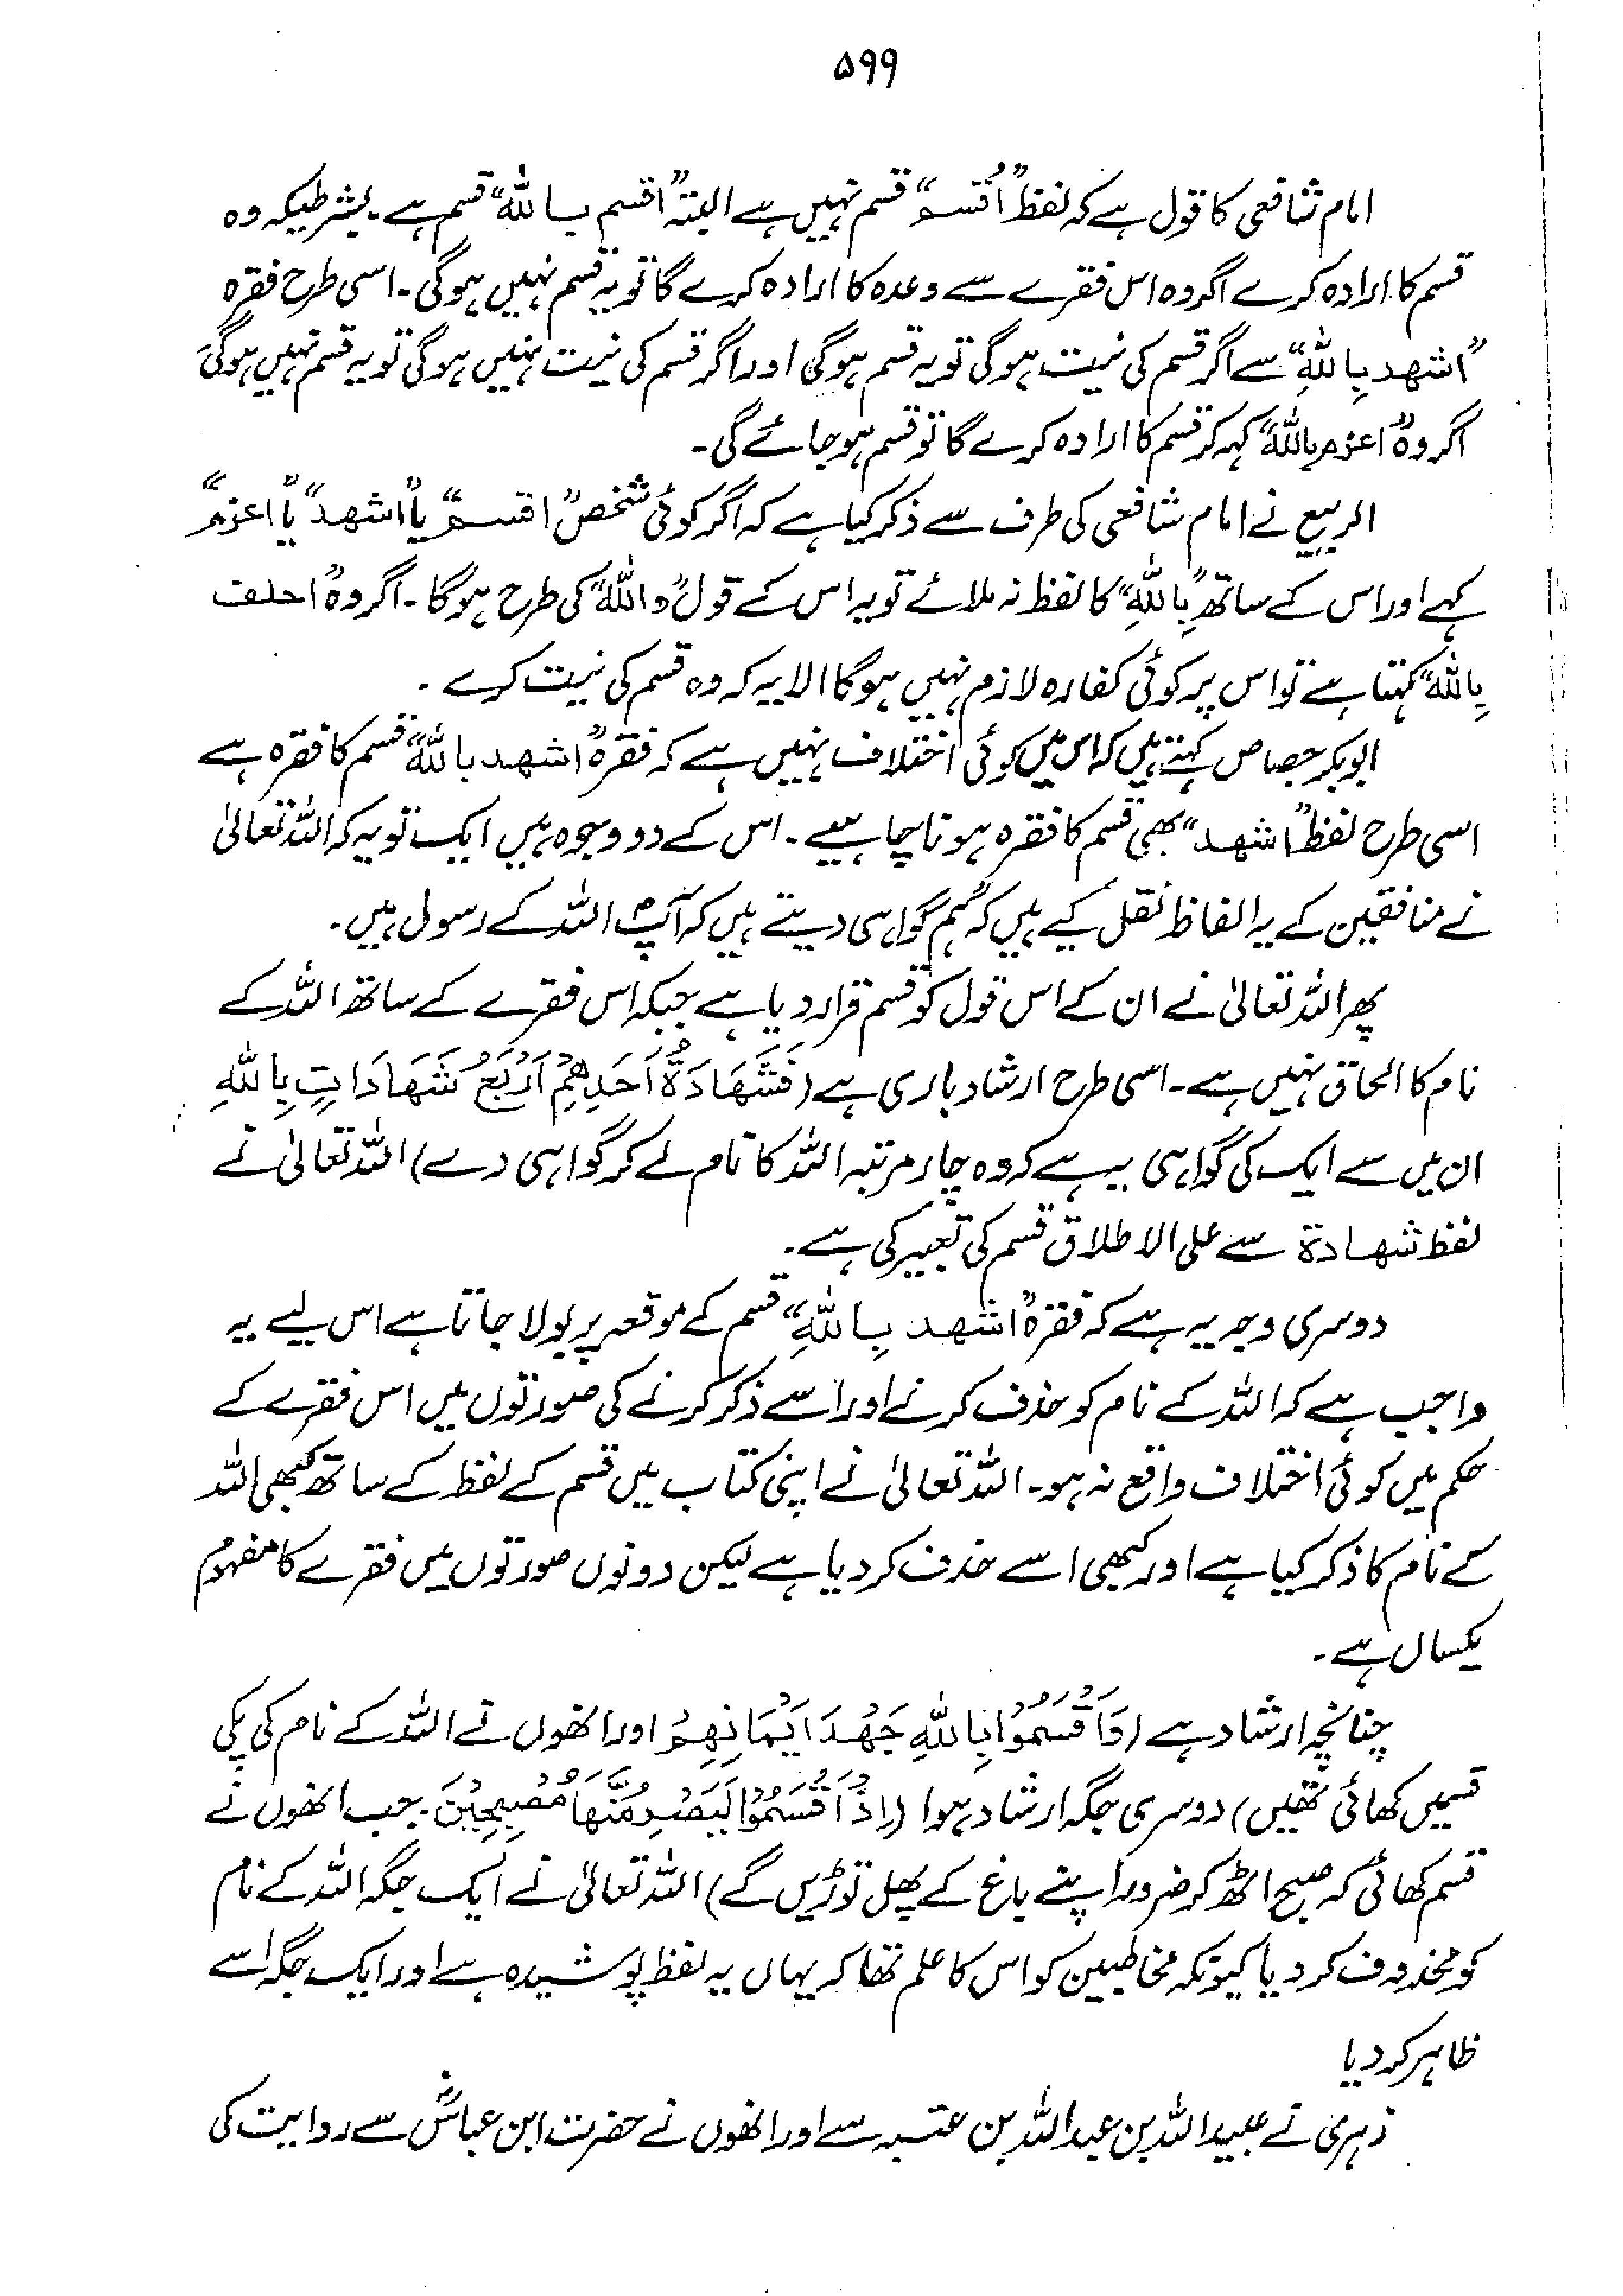 ۵۹۹
امام شافعی کا قول ہے کہ لفظ "اُقسم" قسم نہیں ہے البتہ "اقسم باللہ" قسم ہے۔ بشرطیکہ وہ
قسم کا ارادہ کرے اگر وہ اس فقرے سے وعدہ کا ارادہ کرے گا تو یہ قسم نہیں ہوگی۔ اسی طرح فقرہ
"اشھد بِاللہِ" سے اگر قسم کی نیت ہوگی تو یہ قسم ہوگی اور اگر قسم کی نیت نہیں ہوگی تو یہ قسم نہیں ہوگی۔
اگر وہ "اعزم باللہ" کہہ کر قسم کا ارادہ کرے گا تو قسم ہو جائے گی۔
الربیع نے امام شافعی کی طرف سے ذکر کیا ہے کہ اگر کوئی شخص "اقسم" یا "اشھد" یا "اعزم"
کہے اور اس کے ساتھ "بِاللہِ" کا لفظ نہ ملائے تو یہ اس کے قول "واللہ" کی طرح ہوگا۔ اگر وہ "احلف
بِاللہ" کہتا ہے تو اس پر کوئی کفارہ لازم نہیں ہوگا الا یہ کہ وہ قسم کی نیت کرے۔
ابوبکر جصاص کہتے ہیں کہ اس میں کوئی اختلاف نہیں ہے کہ فقرہ "اشھد باللہ" قسم کا فقرہ ہے
اسی طرح لفظ "اشھد" بھی قسم کا فقرہ ہونا چاہیے۔ اس کے دو وجوہ ہیں ایک تو یہ کہ اللہ تعالیٰ
نے منافقین کے یہ الفاظ نقل کیے ہیں کہ ہم گواہی دیتے ہیں کہ آپؐ اللہ کے رسول ہیں۔
پھر اللہ تعالیٰ نے ان کے اس قول کو قسم قرار دیا ہے جبکہ اس فقرے کے ساتھ اللہ کے
نام کا الحاق نہیں ہے۔ اسی طرح ارشاد باری ہے (فَشَهَادَةُ اَحَدِهِمْ اَرْبَعُ شَهَادَاتٍ بِاللهِ
ان میں سے ایک کی گواہی یہ ہے کہ وہ چار مرتبہ اللہ کا نام لے کر گواہی دے) اللہ تعالیٰ نے
لفظ شھادة سے علی الاطلاق قسم کی تعبیر کی ہے۔
دوسری وجہ یہ ہے کہ فقرہ "اشھد بِاللہِ" قسم کے موقعہ پر بولا جاتا ہے اس لیے یہ
واجب ہے کہ اللہ کے نام کو حذف کرنے اور اسے ذکر کرنے کی صورتوں میں اس فقرے کے
حکم میں کوئی اختلاف واقع نہ ہو۔ اللہ تعالیٰ نے اپنی کتاب میں قسم کے لفظ کے ساتھ کبھی اللہ
کے نام کا ذکر کیا ہے اور کبھی اسے حذف کر دیا ہے لیکن دونوں صورتوں میں فقرے کا مفہوم
یکساں ہے۔
چنانچہ ارشاد ہے (وَاَقْسَمُوْا بِاللهِ جَهْدَ اَيْمَانِهِمْ اور انھوں نے اللہ کے نام کی پکی
قسمیں کھائی تھیں) دوسری جگہ ارشاد ہوا (اِذْ اَقْسَمُوْا لَيَصْرِمُنَّهَا مُصْبِحِيْنَ۔ جب انھوں نے
قسم کھائی کہ صبح اٹھ کر ضرور اپنے باغ کے پھل توڑیں گے) اللہ تعالیٰ نے ایک جگہ اللہ کے نام
کو محذوف کر دیا کیونکہ مخاطبین کو اس کا علم تھا کہ یہاں یہ لفظ پوشیدہ ہے اور ایک جگہ اسے
ظاہر کر دیا
زہری نے عبیداللہ بن عبداللہ بن عتبہ سے اور انھوں نے حضرت ابن عباسؓ سے روایت کی